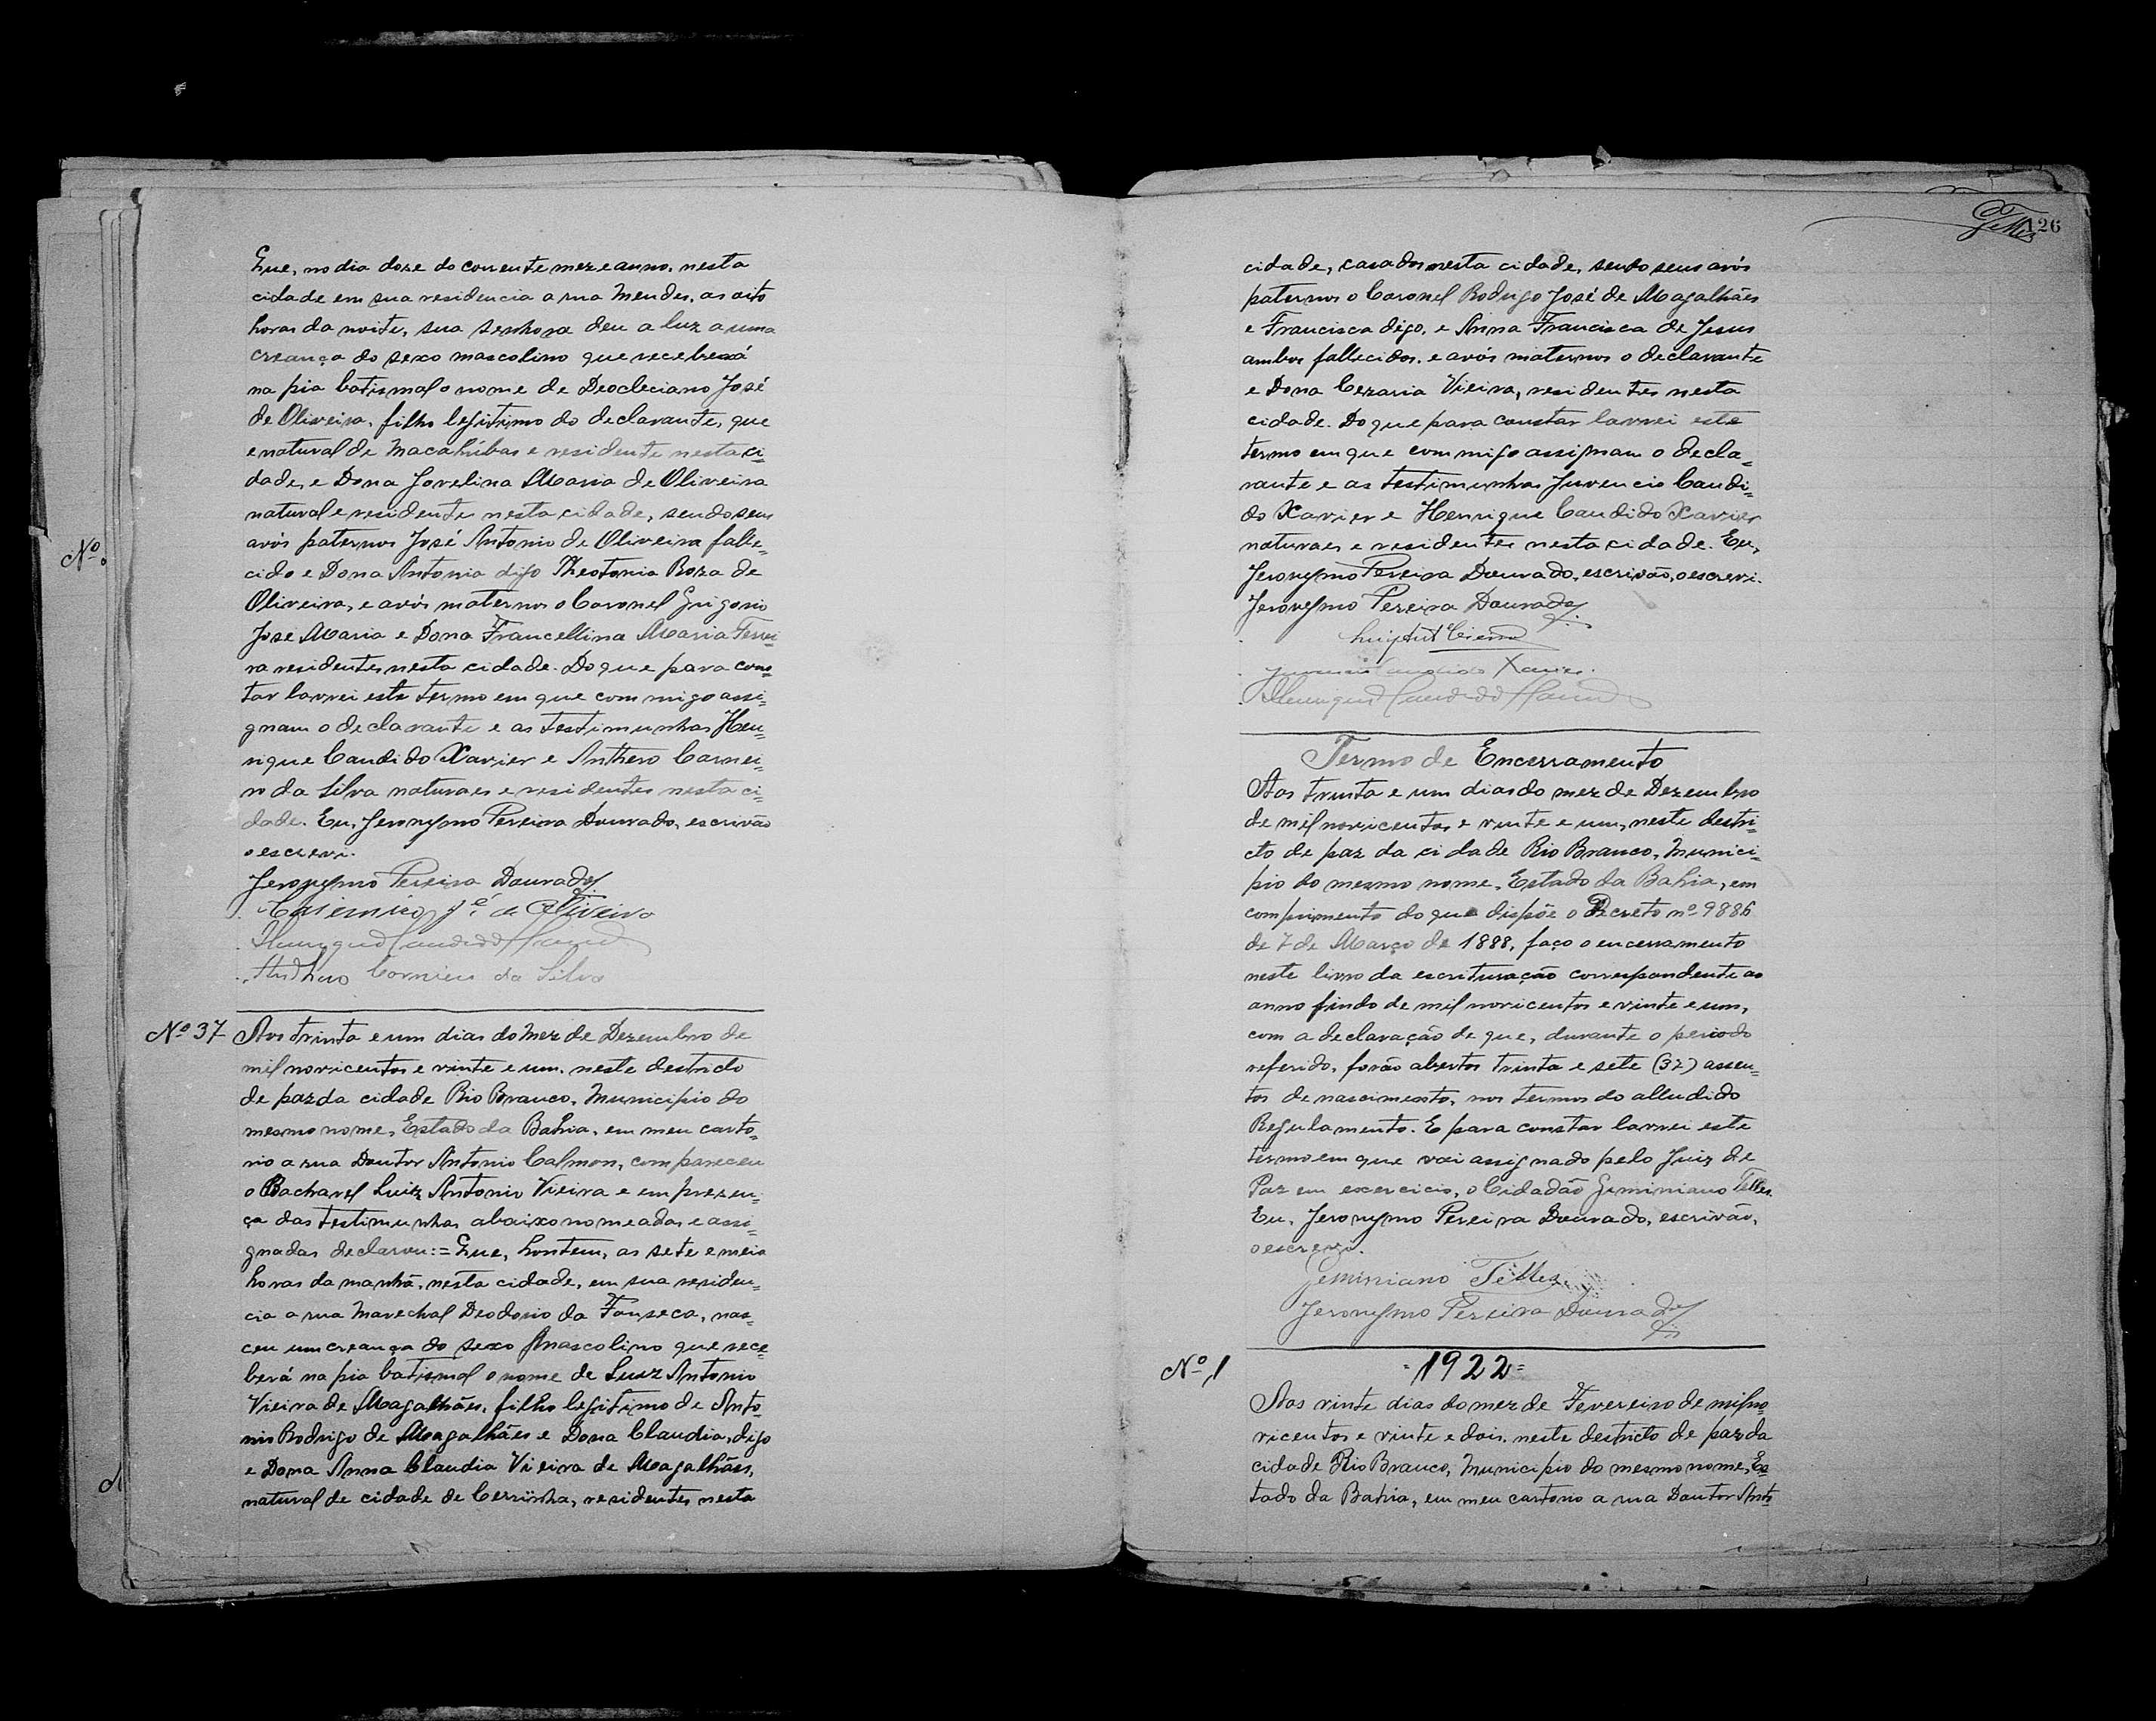 Que, no dia doze do corrente mez e anno, nesta
cidade em sua residencia a rua Mendes, as oito
horas da noite, sua senhora deu a luz a uma
creança do sexo mascolino que receberá
na pia batismal o nome de Deocleciano José
de Oliveira, filho legitimo do declarante, que
e natural de Macahúbas e residente nesta ci-
dade, e Dona Jovelina Maria de Oliveira
natural e residente nesta cidade, sendo seus
avós paternos José Antonio de Oliveira falle-
cido e Dona Antonia digo Theotonia Roza de
Oliveira, e avós maternos o Coronel Grigorio
José Maria e Dona Francellina Maria Ferrei
ra residentes nesta cidade. Do que para cons-
tar lavrei este termo em que commigo assi-
gnam o declarante e as testimunhas Hen-
rique Candido Xavier e Anthero Carnei-
ro da Silva naturaes e residentes nesta ci-
dade. Eu, Jeronymo Pereira Dourado, escrivão
o escrevi.
Jeronymo Pereira Dourado
Casimiro Jé de Oliveira
Henrique Candido Xavier
Anthero Carneiro da Silva
Nº 37 Aos trinta e um dias do mez de Dezembro de
mil novicentos e vinte e um, neste destricto
de paz da cidade Rio Branco, Municipio do
mesmo nome, Estado da Bahia, em meu carto-
rio a rua Doutor Antonio Calmon, compareceu
o Bacharel Luiz Antonio Vieira e em presen-
ça das testimunhas abaixo nomeadas e assi-
gnadas declarou:= Que, hontem, as sete e meia
horas da manhã, nesta cidade, em sua residen-
cia a rua Marechal Deodorio da Fonseca, nas-
ceu um creança do sexo mascolino que rece-
berá na pia batismal o nome de Luiz Antonio
Vieira de Magalhães, filho legitimo de Anto-
nio Rodrigo de Magalhães e Dona Claudia, digo
e Dona Anna Claudia Vieira de Magalhães,
natural de cidade de Cerrinha, residentes nesta
Nº.
Telles
126
cidade, casados nesta cidade, sendo seus avós
paternos o Coronel Rodrigo José de Magalhães
e Francisca digo, e Anna Francisca de Jesus
ambos fallecidos, e avós maternos o declarante
e Dona Cezaria Vieira, residentes nesta
cidade. Do que para constar lavrei este
termo em que commigo assignam o decla-
rante e as testimunhas Juvencio Candi-
do Xavier e Henrique Candido Xavier
naturaes e residentes nesta cidade. Eu,
Jeronymo Pereira Dourado, escrivão, o escrevi.
Jeronymo Pereira Dourado
Luiz Ant Vieira
Juvencio Candido Xavier.
Henrique Candido Xavier
Termo de Encerramento
Aos trinta e um dias do mez de Dezembro
de mil novicentos e vinte e um, neste destri-
cto de paz da cidade Rio Branco, Munici-
pio do mesmo nome, Estado da Bahia, em
comprimento do que dispõe o Decreto nº 9886
de 7 de Março de 1888, faço o encerramento
neste livro da escrituração correspondente ao
anno findo de mil novicentos e vinte e um,
com a declaração de que, durante o periodo
referido, forão abertos trinta e sete (37) assen-
tos de nascimento, nos termos do alludido
Regulamento. E para constar lavrei este
termo em que vai assignado pelo Juiz de
Paz em excercicio, o Cidadão Geminiano Telles.
Eu, Jeronymo Pereira Dourado, escrivão,
o escrevi.
Geminiano Telles
Jeronymo Pereira Dourado
Nº 1
=1922=
Aos vinte dias do mez de Fevereiro de mil no-
vicentos e vinte e dois, neste destricto de paz da
cidade Rio Branco, Municipio do mesmo nome, Es-
tado da Bahia, em meu cartorio a rua Doutor Anto-